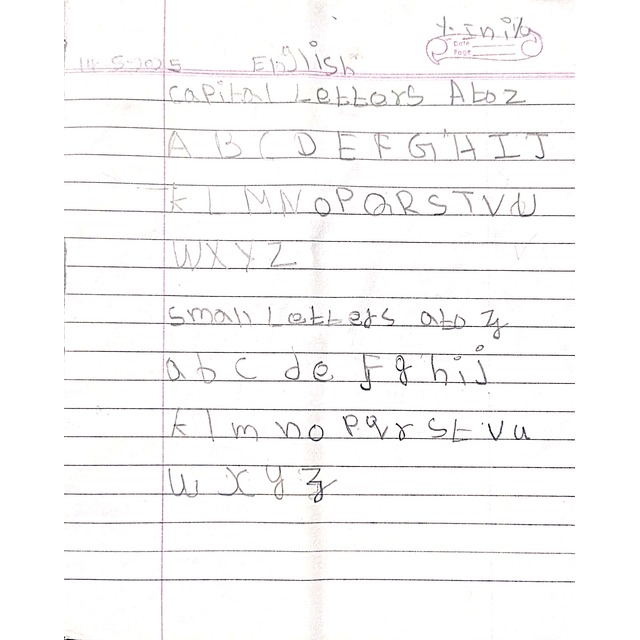 Y. Inila
Date
Page
14-5-2025 English
Capital Letters A to Z
A B C D E F G H I J
K L M N O P Q R S T V U
W X Y Z
small Letters a to z
a b c d e f g h i j
k l m n o p q r s t v u
w x y z